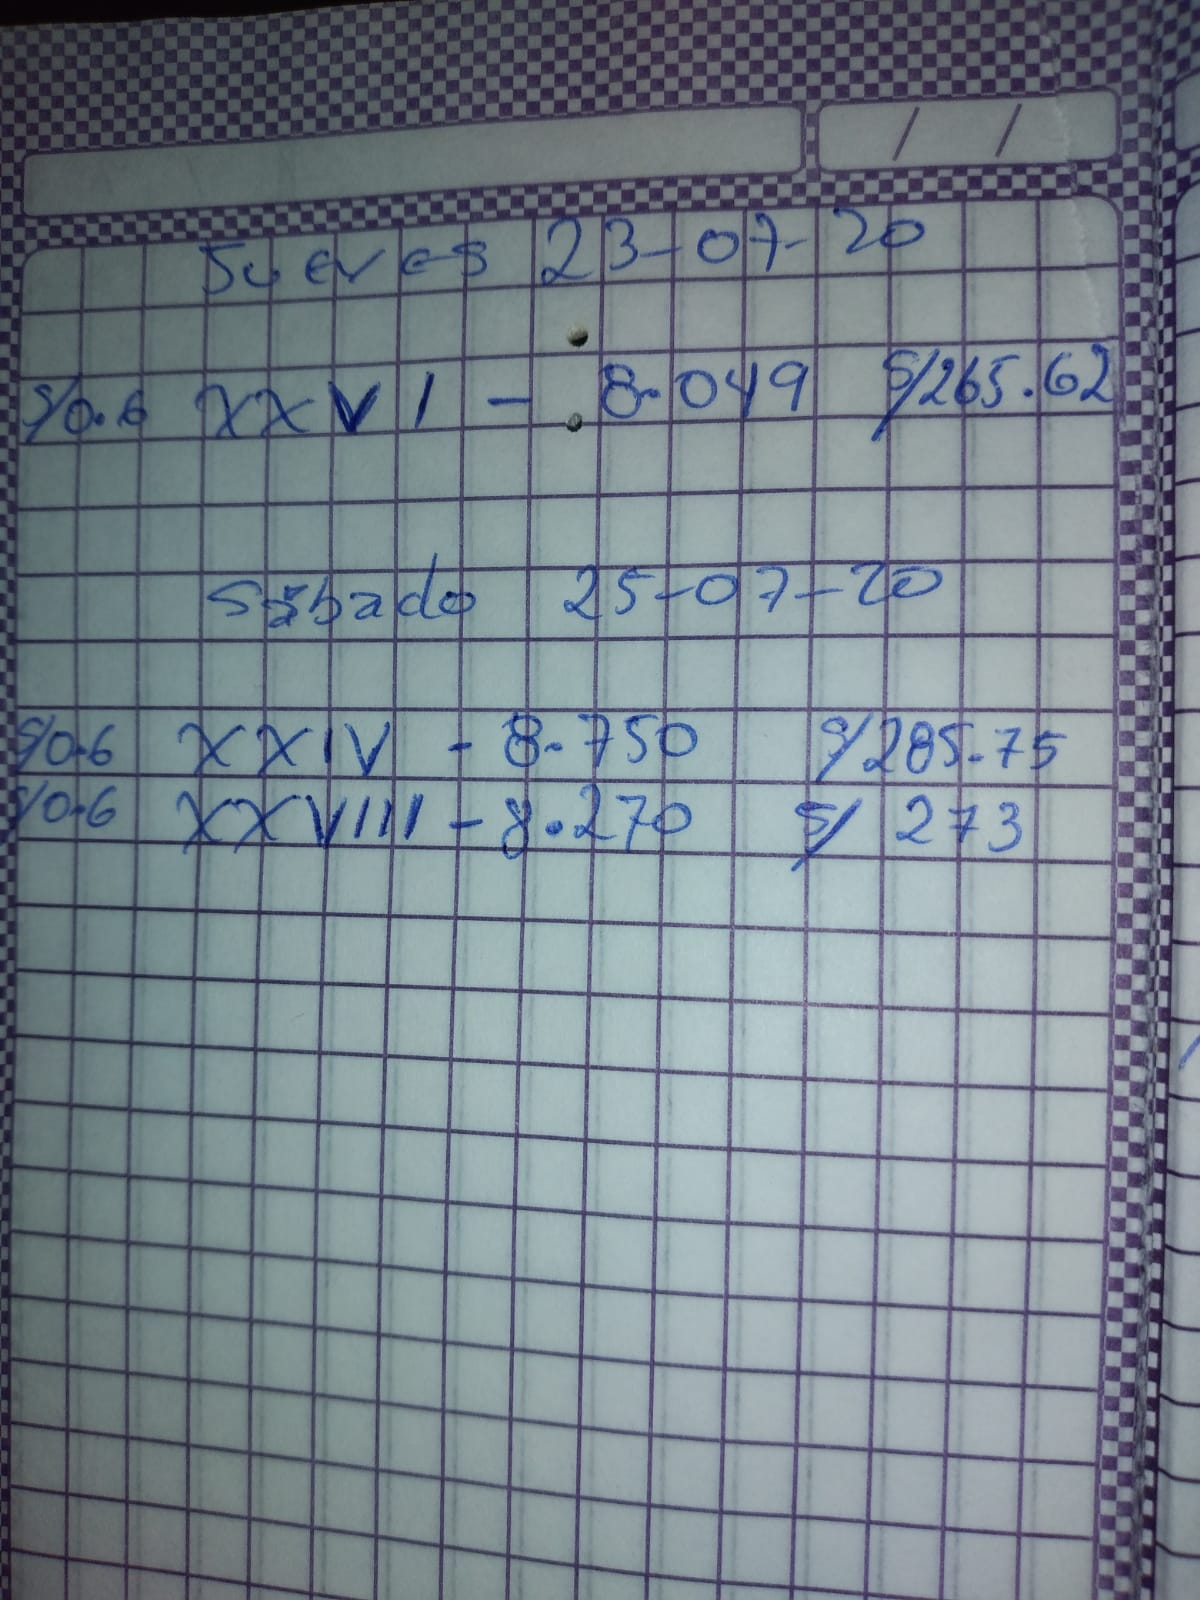 / /
Jueves 23-07-20
S/0.6 XXVI - 8.049 S/265.62
Sábado 25-07-20
S/0.6 XXIV - 8.750 S/285.75
S/0.6 XXVIII - 8.270 S/ 273